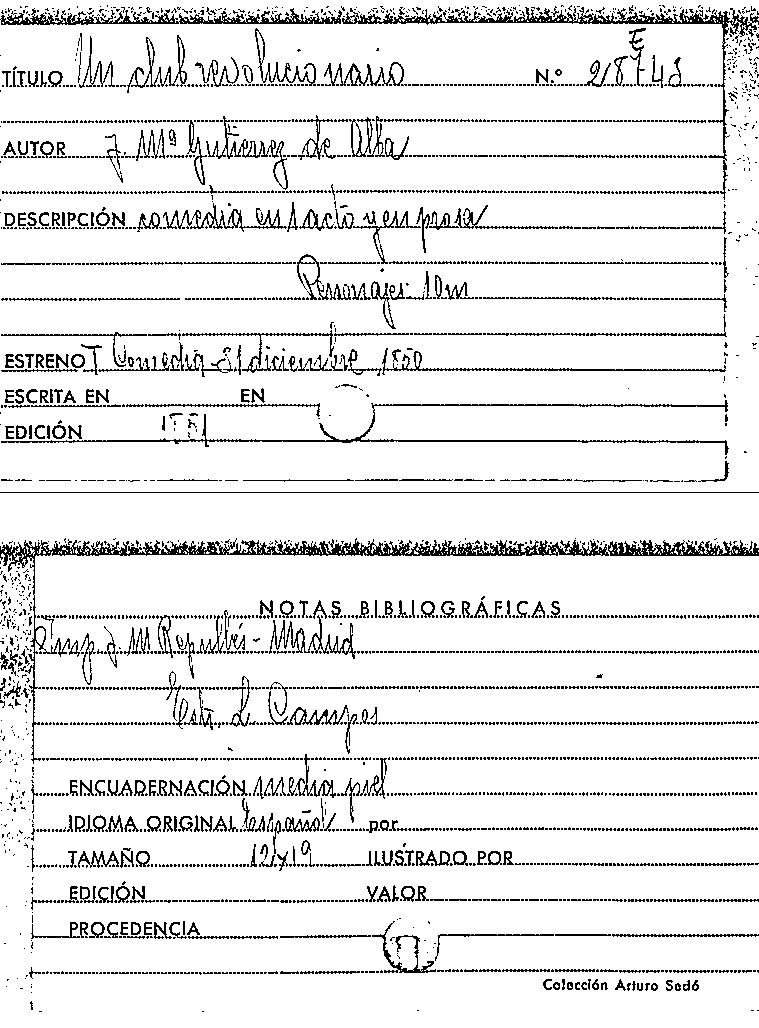 E
TÍTULO Un club revolucionario N.º 28748
AUTOR J. Mª Gutierrez de Alba
DESCRIPCIÓN comedia en 1 acto y en prosa
Personajes 10m
ESTRENO T Comedia - 31 diciembre 1850
ESCRITA EN EN
EDICIÓN 1851
NOTAS BIBLIOGRÁFICAS
Imp. J. M Repullés - Madrid
Estr. L Campos
ENCUADERNACIÓN media piel
IDIOMA ORIGINAL Español por
TAMAÑO 12x19 ILUSTRADO POR
EDICIÓN VALOR
PROCEDENCIA
Colección Arturo Sedó